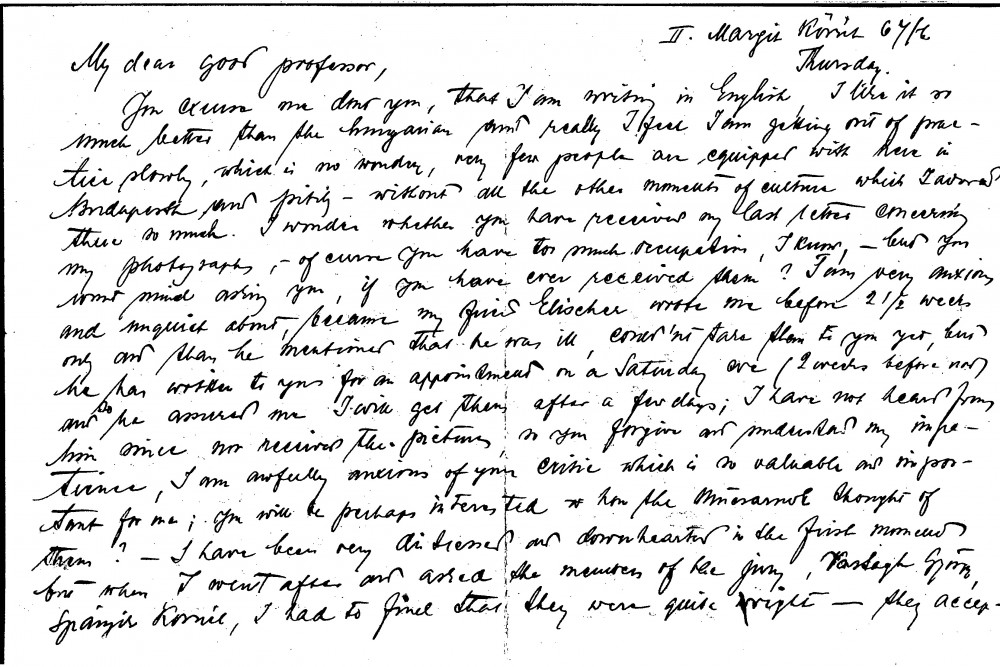 II. Margit Körút 64/b
Thursday.
My dear good professor,
You excuse me dont you, that I am writing in English, I like it so
much better than the hungarian and really I feel I am getting out of prac-
tice slowly, which is no wonder, very few people are equipped with here in
Budapesth, and pitily - without all the other moments of culture which I adored
there so much. I wonder whether you have received my last letter concerning
my photographs, - of curse you have too much occupation, I know, - but you
wont mind asking you, if you have ever received them? I am very anxious
and unquiet about, because my friend Elischer wrote me before 2 1/2 weeks
only and than he mentioned that he was ill, could'nt take them to you yet, but
he has written to you for an appointment on a Saturday eve (2 weeks before now)
and so he assured me I will get them after a few days; I have not heard from
him since nor received the pictures, so you forgive and understand my impa-
tience, I am awfully anxious of your critic which is so valuable and impor-
tant for me; you will be perhaps interested how the Mücsarnok thought of
them? - I have been very distressed and downhearted in the first moment
but when I went after and asked the members of the jury, Vastagh György,
Spányik Kornél, I had to find that they were quite right - they accep-